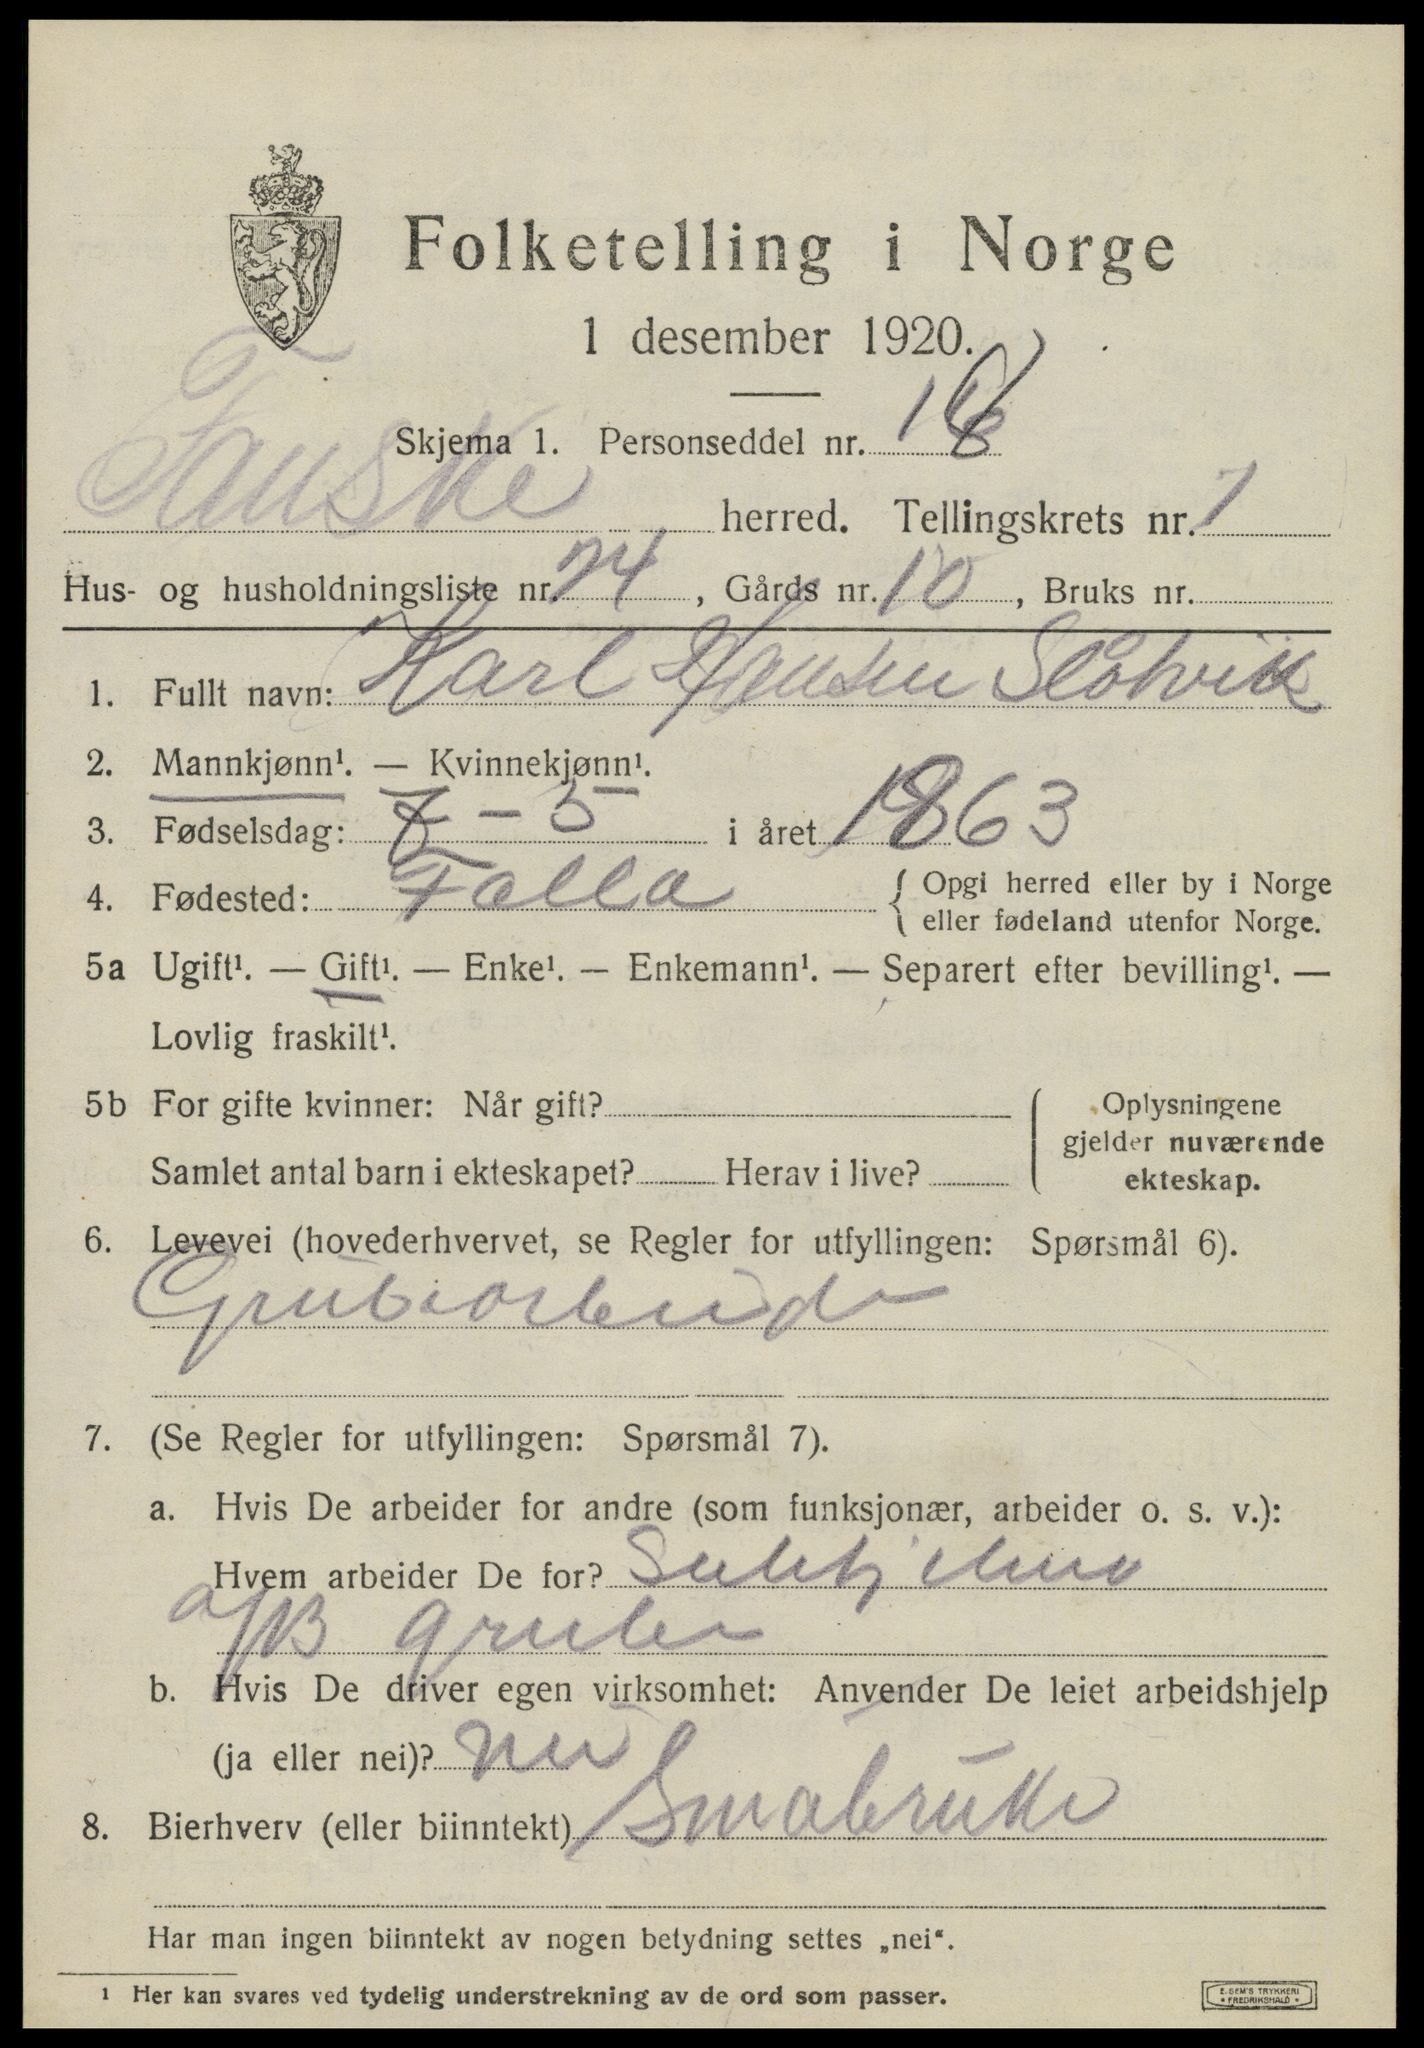 Folketelling i Norge
1 desember 1920.
Skjema 1. Personseddel nr.
Fauske herred. Tellingskrets nr. 7
Hus- og husholdningsliste nr. 74, Gårds nr. 10, Bruks nr.
1. Fullt navn: Karl Hansen Slåtvik
2. Mannkjønn¹. — Kvinnekjønn¹.
3. Fødselsdag: 7 - 5 i året 1863
4. Fødested: Folla { Opgi herred eller by i Norge
eller fødeland utenfor Norge.
5a Ugift¹. — Gift¹. — Enke¹. — Enkemann¹. — Separert efter bevilling¹. —
Lovlig fraskilt¹.
5b For gifte kvinner: Når gift?
Samlet antal barn i ekteskapet? Herav i live?
Oplysningene
gjelder nuværende
ekteskap.
6. Levevei (hovederhvervet, se Regler for utfyllingen: Spørsmål 6).
Grubearbeider
7. (Se Regler for utfyllingen: Spørsmål 7).
a. Hvis De arbeider for andre (som funksjonær, arbeider o. s. v.):
Hvem arbeider De for? Sulitjelma
a/B gruber
b. Hvis De driver egen virksomhet: Anvender De leiet arbeidshjelp
(ja eller nei)? nei
8. Bierhverv (eller biinntekt) Småbruker
Har man ingen biinntekt av nogen betydning settes „nei“.
¹ Her kan svares ved tydelig understrekning av de ord som passer.
E. SEM'S TRYKKERI
• FREDRIKSHALD •